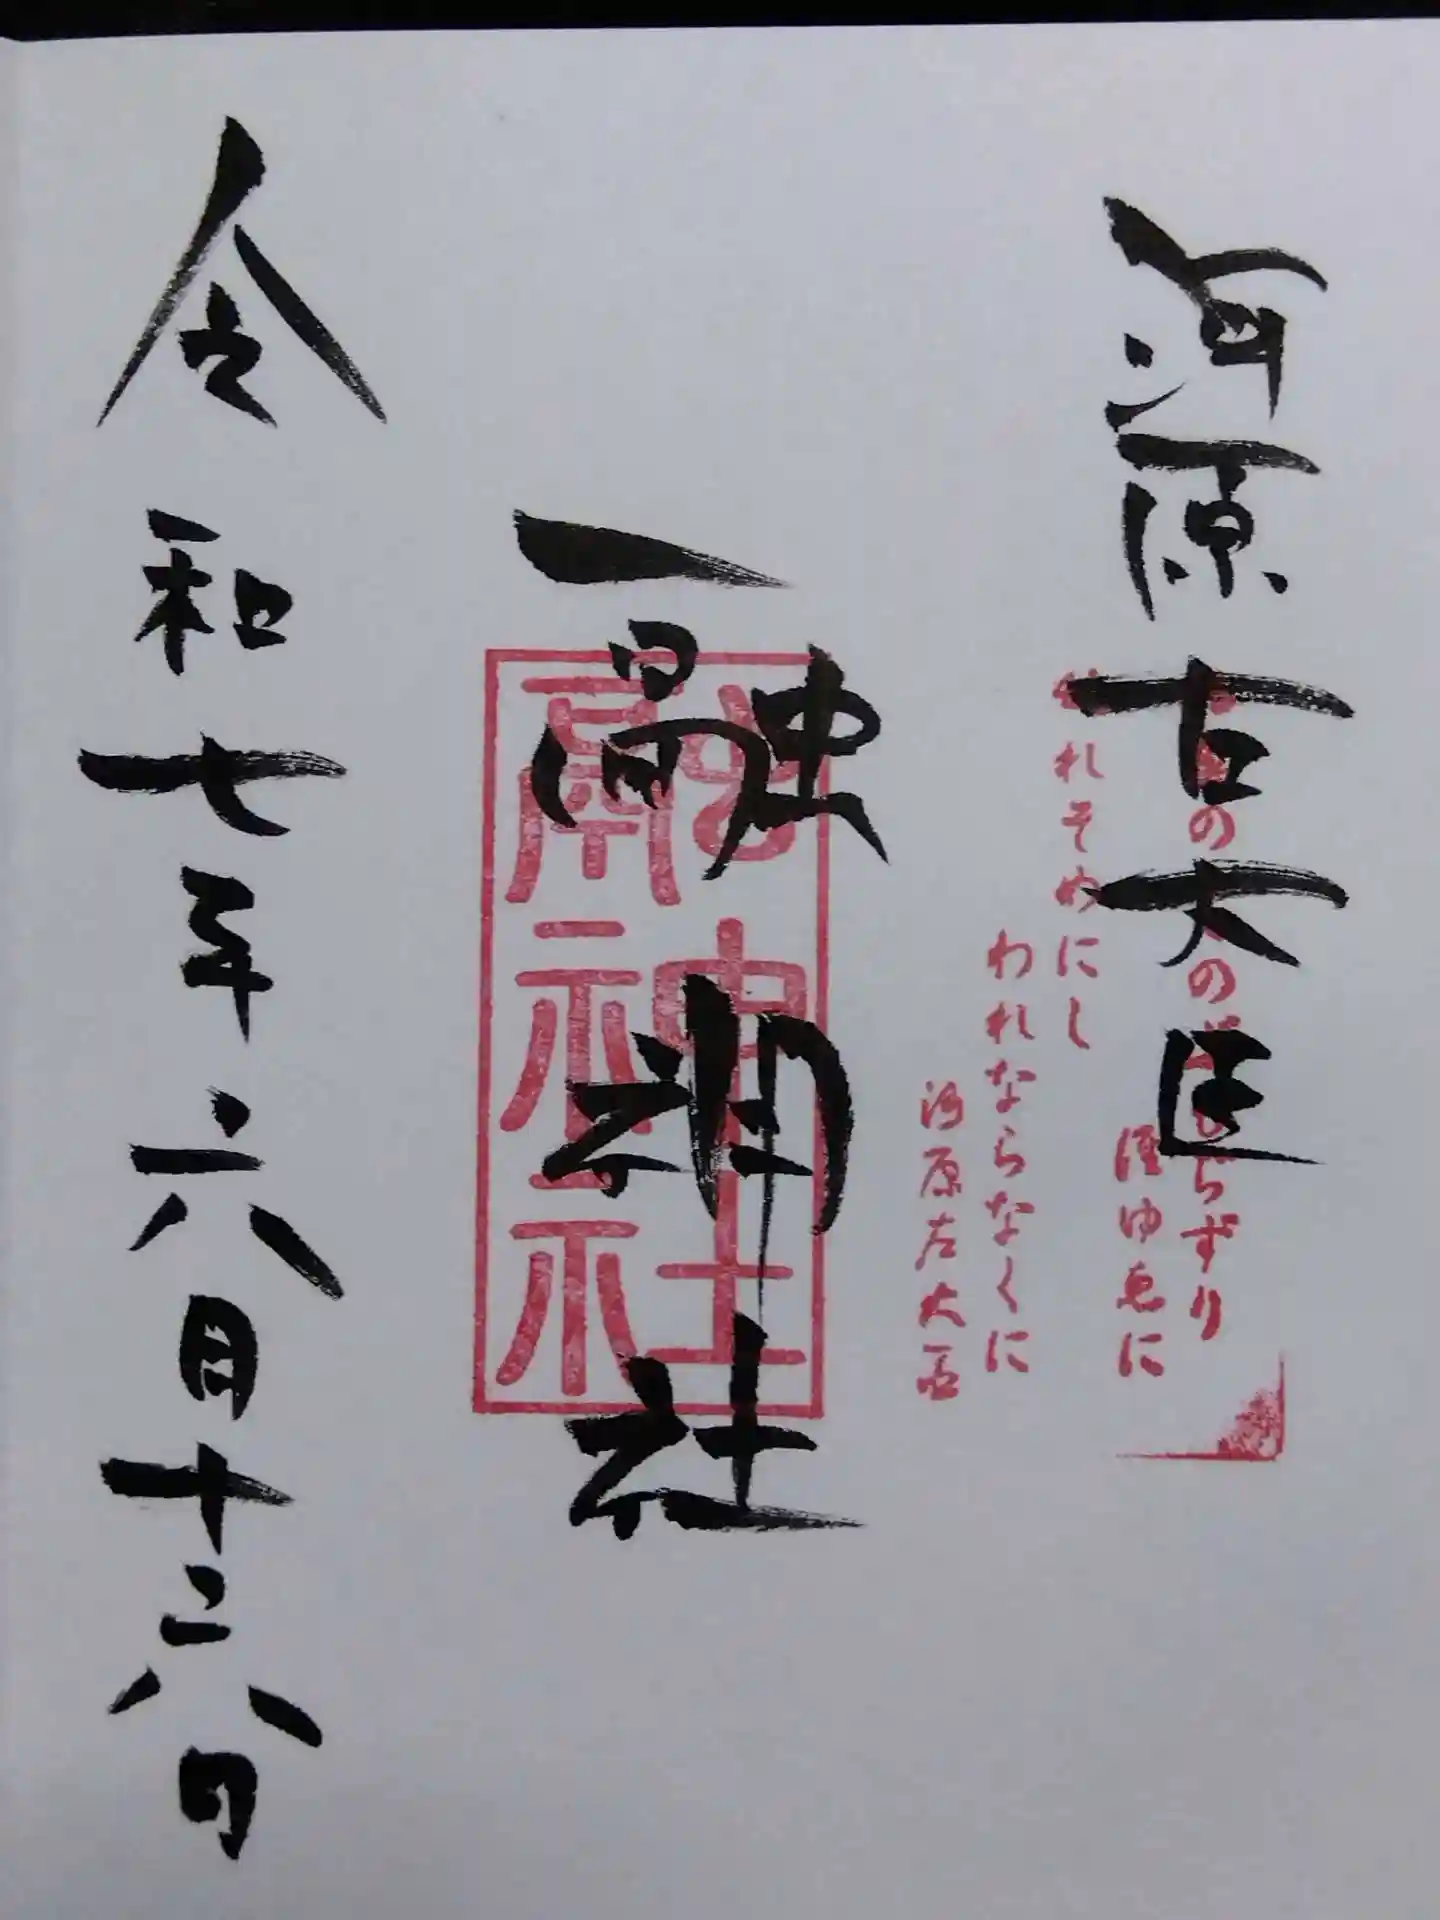 河原左大臣
みちのくのしのぶもぢずり
誰ゆゑに
乱れそめにし
われならなくに
河原左大臣
融神社
融神社
令和七年六月十六日